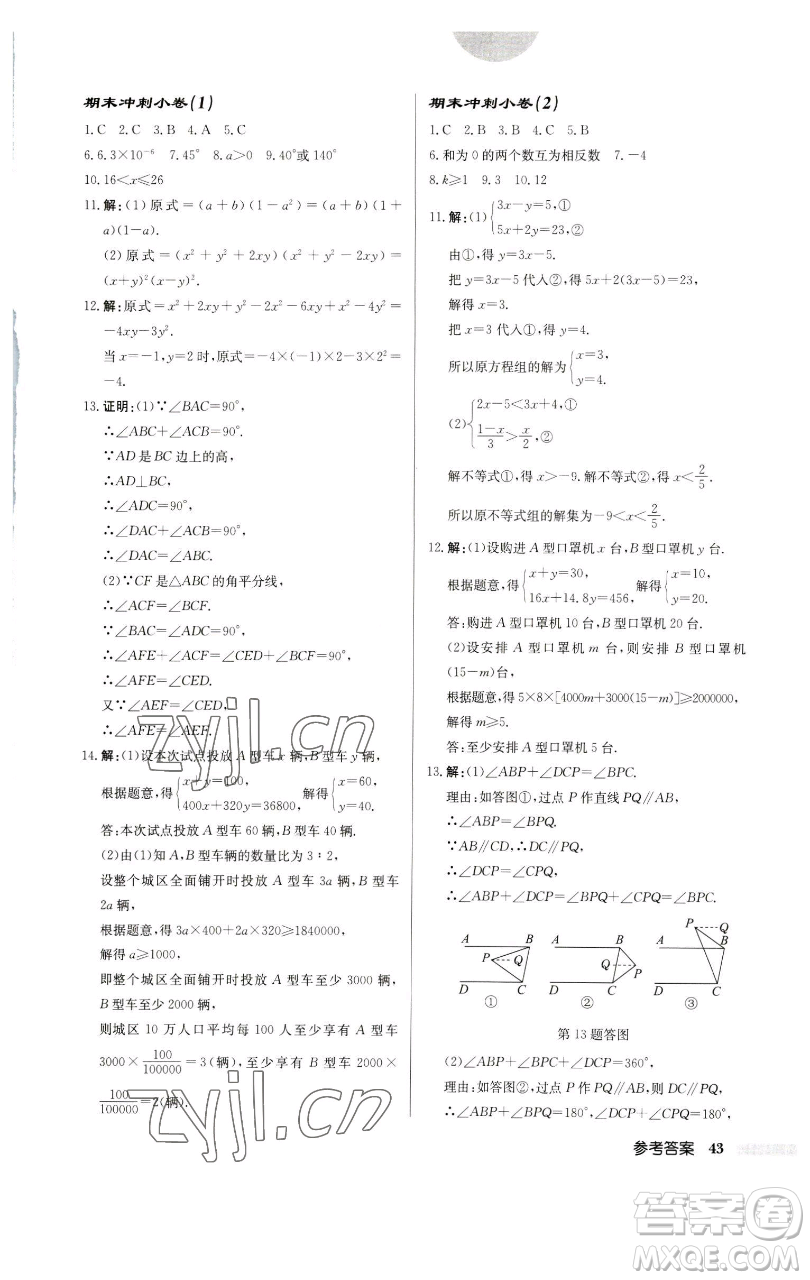 期末冲刺小卷(1)
1.C 2.C 3.B 4.A 5.C
6.6.3×10⁻⁶ 7.45° 8.a>0 9.40°或140°
10.16<x≤26
11.解:(1)原式=(a+b)(1-a²)=(a+b)(1+
a)(1-a).
(2)原式=(x²+y²+2xy)(x²+y²-2xy)=
(x+y)²(x-y)².
12.解:原式=x²+2xy+y²-2x²-6xy+x²-4y²=
-4xy-3y².
当x=-1,y=2时,原式=-4×(-1)×2-3×2²=
-4.
13.证明:(1)∵∠BAC=90°,
∴∠ABC+∠ACB=90°.
∵AD是BC边上的高,
∴AD⊥BC,
∴∠ADC=90°,
∴∠DAC+∠ACB=90°,
∴∠DAC=∠ABC.
(2)∵CF是△ABC的角平分线,
∴∠ACF=∠BCF.
∵∠BAC=∠ADC=90°,
∴∠AFE+∠ACF=∠CED+∠BCF=90°,
∴∠AFE=∠CED.
又∵∠AEF=∠CED,
∴∠AFE=∠AEF.
14.解:(1)设本次试点投放A型车x辆,B型车y辆.
根据题意,得{x+y=100, 400x+320y=36800. 解得{x=60, y=40.
答:本次试点投放A型车60辆,B型车40辆.
(2)由(1)知A,B型车辆的数量比为3:2,
设整个城区全面铺开时投放A型车3a辆,B型车
2a辆,
根据题意,得3a×400+2a×320≥1840000,
解得a≥1000,
即整个城区全面铺开时投放A型车至少3000辆,
B型车至少2000辆,
则城区10万人口平均每100人至少享有A型车
3000×100/100000=3(辆),至少享有B型车2000×
100/100000=2(辆).
期末冲刺小卷(2)
1.C 2.B 3.C 4.C 5.B
6.和为0的两个数互为相反数 7.-4
8.k≥1 9.3 10.12
11.解:(1){3x-y=5,① 5x+2y=23,②
由①,得y=3x-5.
把y=3x-5代入②,得5x+2(3x-5)=23,
解得x=3.
把x=3代入①,得y=4.
所以原方程组的解为{x=3, y=4.
(2){2x-5<3x+4,① (1-x)/3>x/2,②
解不等式①,得x>-9.解不等式②,得x<2/5.
所以原不等式组的解集为-9<x<2/5.
12.解:(1)设购进A型口罩机x台,B型口罩机y台.
根据题意,得{x+y=30, 16x+14.8y=456, 解得{x=10, y=20.
答:购进A型口罩机10台,B型口罩机20台.
(2)设安排A型口罩机m台,则安排B型口罩机
(15-m)台,
根据题意,得5×8×[4000m+3000(15-m)]≥2000000,
解得m≥5.
答:至少安排A型口罩机5台.
13.解:(1)∠ABP+∠DCP=∠BPC.
理由:如答图①,过点P作直线PQ∥AB,
∴∠ABP=∠BPQ.
∵AB∥CD,∴DC∥PQ,
∴∠DCP=∠CPQ,
∴∠ABP+∠DCP=∠BPC.
A B P Q D C ①
A B Q P D C ②
P Q A B D C ③
第13题答图
(2)∠ABP+∠BPC+∠DCP=360°,
理由:如答图②,过点P作PQ∥AB,则DC∥PQ,
∴∠ABP+∠BPQ=180°,∠DCP+∠CPQ=180°,
参考答案 43
zyjl.cn
zyjl.cn
答案圈
MXQE.COM